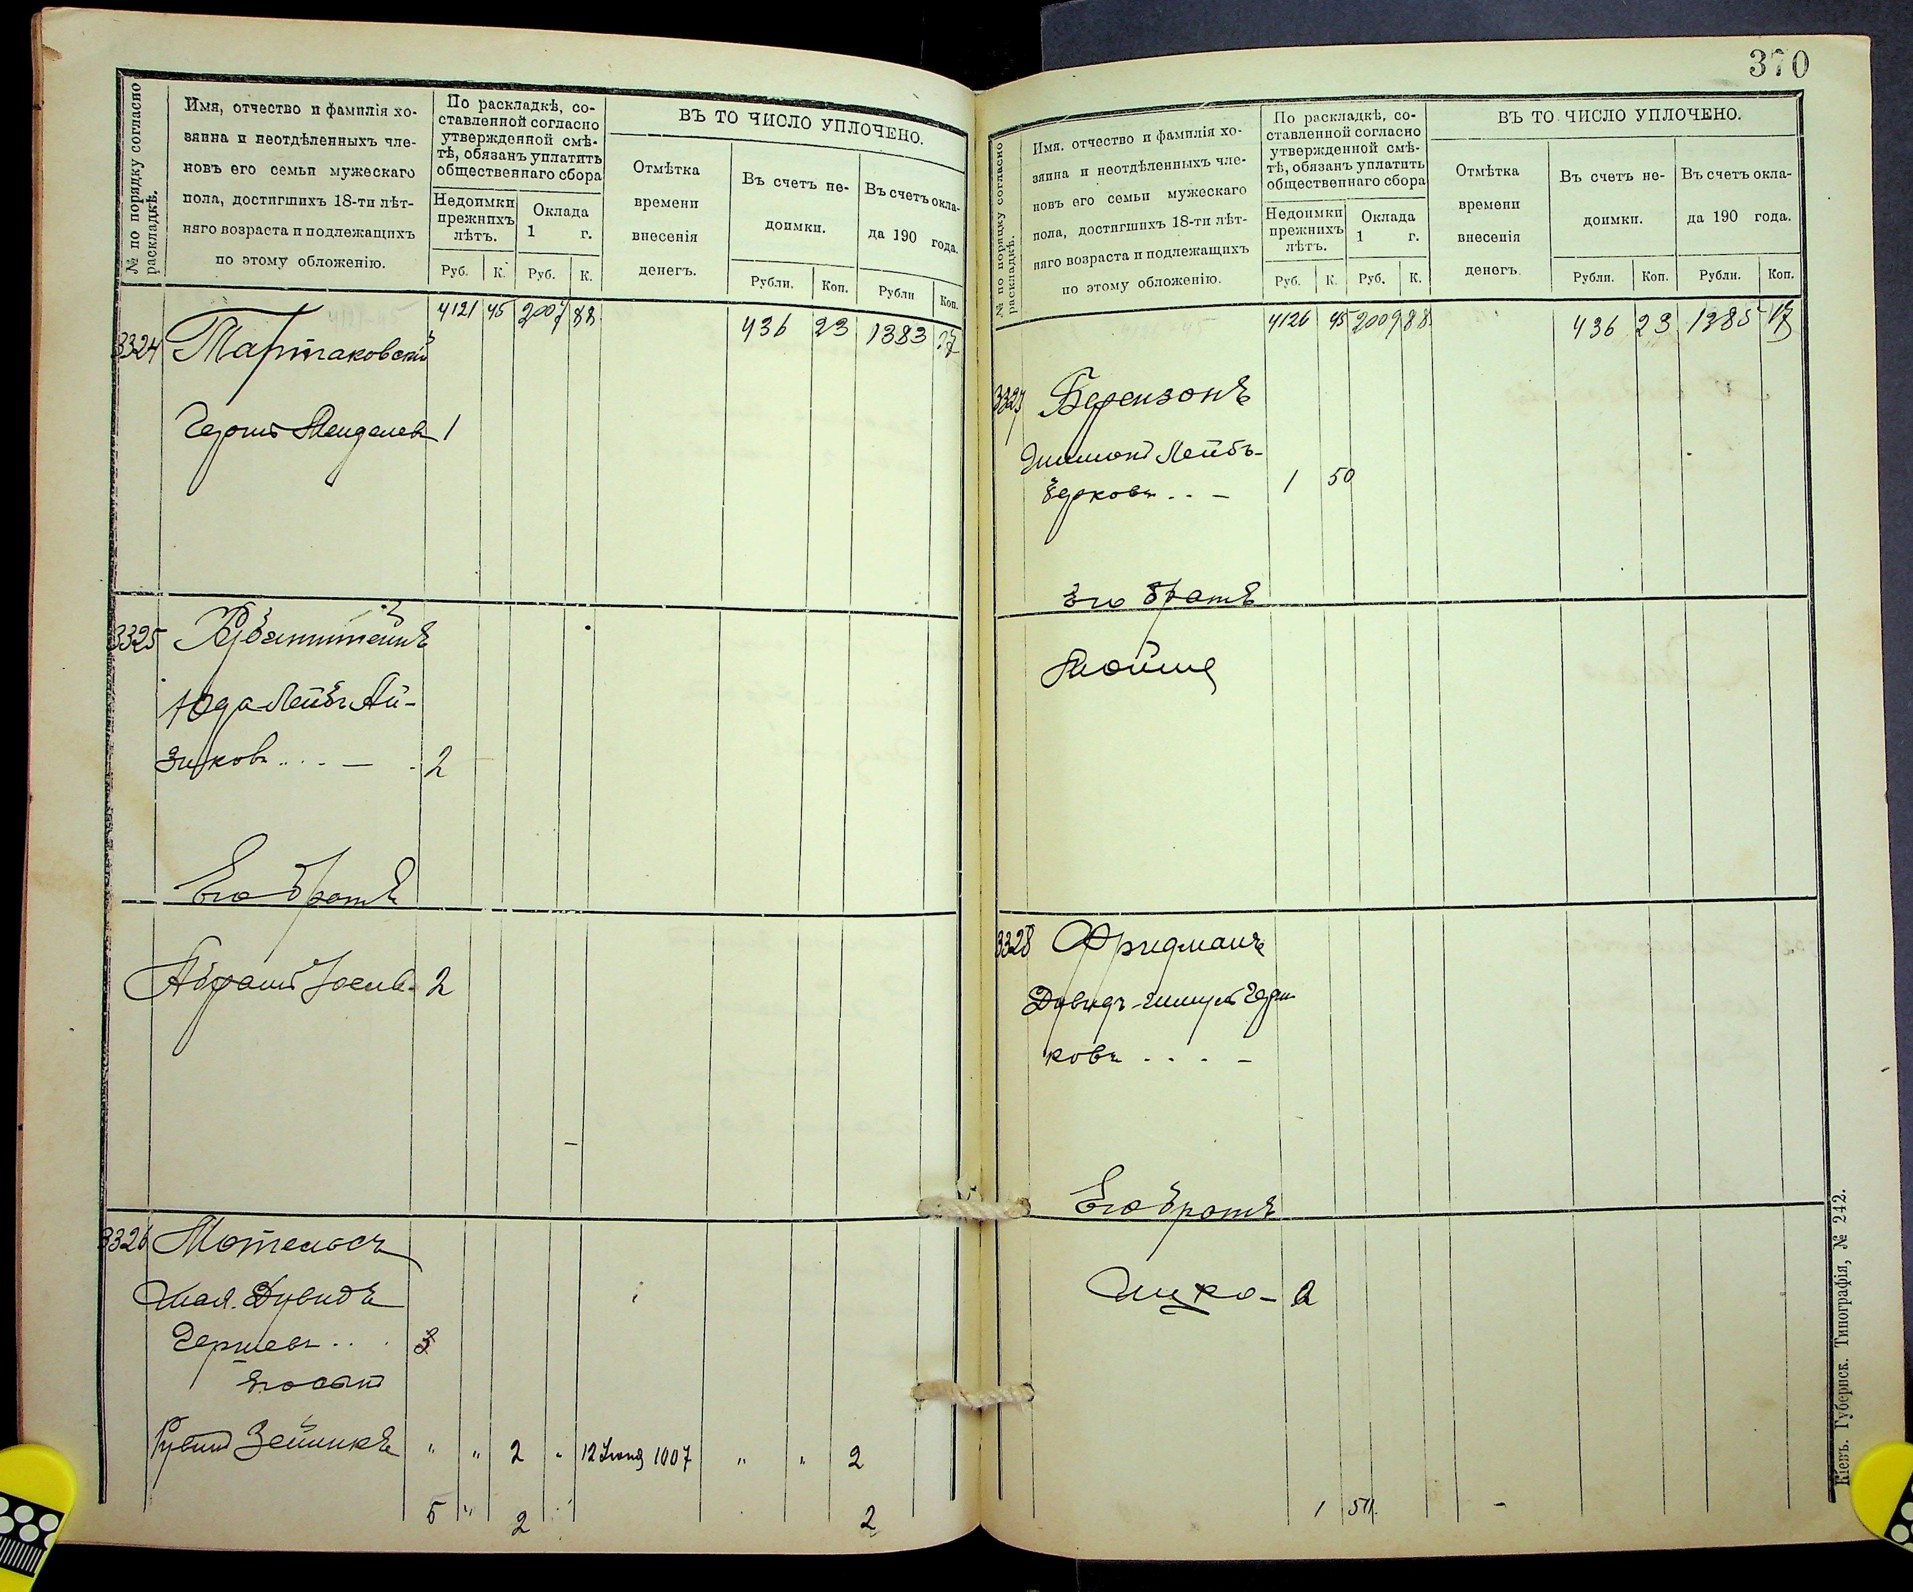 370
№ по порядку согласно раскладкѣ.
Имя, отчество и фамилія хо-
зяина и неотдѣленныхъ чле-
новъ его семьи мужескаго
пола, достигшихъ 18-ти лѣт-
няго возраста и подлежащихъ
по этому обложенію.
По раскладкѣ, со-
ставленной согласно
утвержденной смѣ-
тѣ, обязанъ уплатить
общественнаго сбора
Недоимки
прежнихъ
лѣтъ.
Оклада
1 г.
Руб. К. Руб. К.
ВЪ ТО ЧИСЛО УПЛОЧЕНО.
Отмѣтка
времени
внесенія
денегъ.
Въ счетъ не-
доимки.
Въ счетъ окла-
да 190 года.
Рубли. Коп. Рубли Коп.
4121 45 2007 88 436 23 1383
3324 Тартаковскій
Гершъ Менделев 1
3325
Юда-Лейбъ Ай-
зиковъ . . . — 2
Его братъ
Абрамъ 2
3326 Мотелосъ
Дувидъ
Гершевъ . .
Рувинъ Зейликъ " " 2 " 12 Іюня 1907 " " 2
5 " 2 2
№ по порядку согласно раскладкѣ.
Имя, отчество и фамилія хо-
зяина и неотдѣленныхъ чле-
новъ его семьи мужескаго
пола, достигшихъ 18-ти лѣт-
няго возраста и подлежащихъ
по этому обложенію.
По раскладкѣ, со-
ставленной согласно
утвержденной смѣ-
тѣ, обязанъ уплатить
общественнаго сбора
Недоимки
прежнихъ
лѣтъ.
Оклада
1 г.
Руб. К. Руб. К.
ВЪ ТО ЧИСЛО УПЛОЧЕНО.
Отмѣтка
времени
внесенія
денегъ.
Въ счетъ не-
доимки.
Въ счетъ окла-
да 190 года.
Рубли. Коп. Рубли. Коп.
4126 45 2009 88 436 23 1385
3327 Березонъ
Лейбъ-
Берковъ . . — 1 50
Его братъ
Мойше
3328 Фридманъ
Давидъ
ковъ . . . . —
Его братъ
Ицко — 2
1 50
Кіевъ. Губернск. Типографія, № 242.